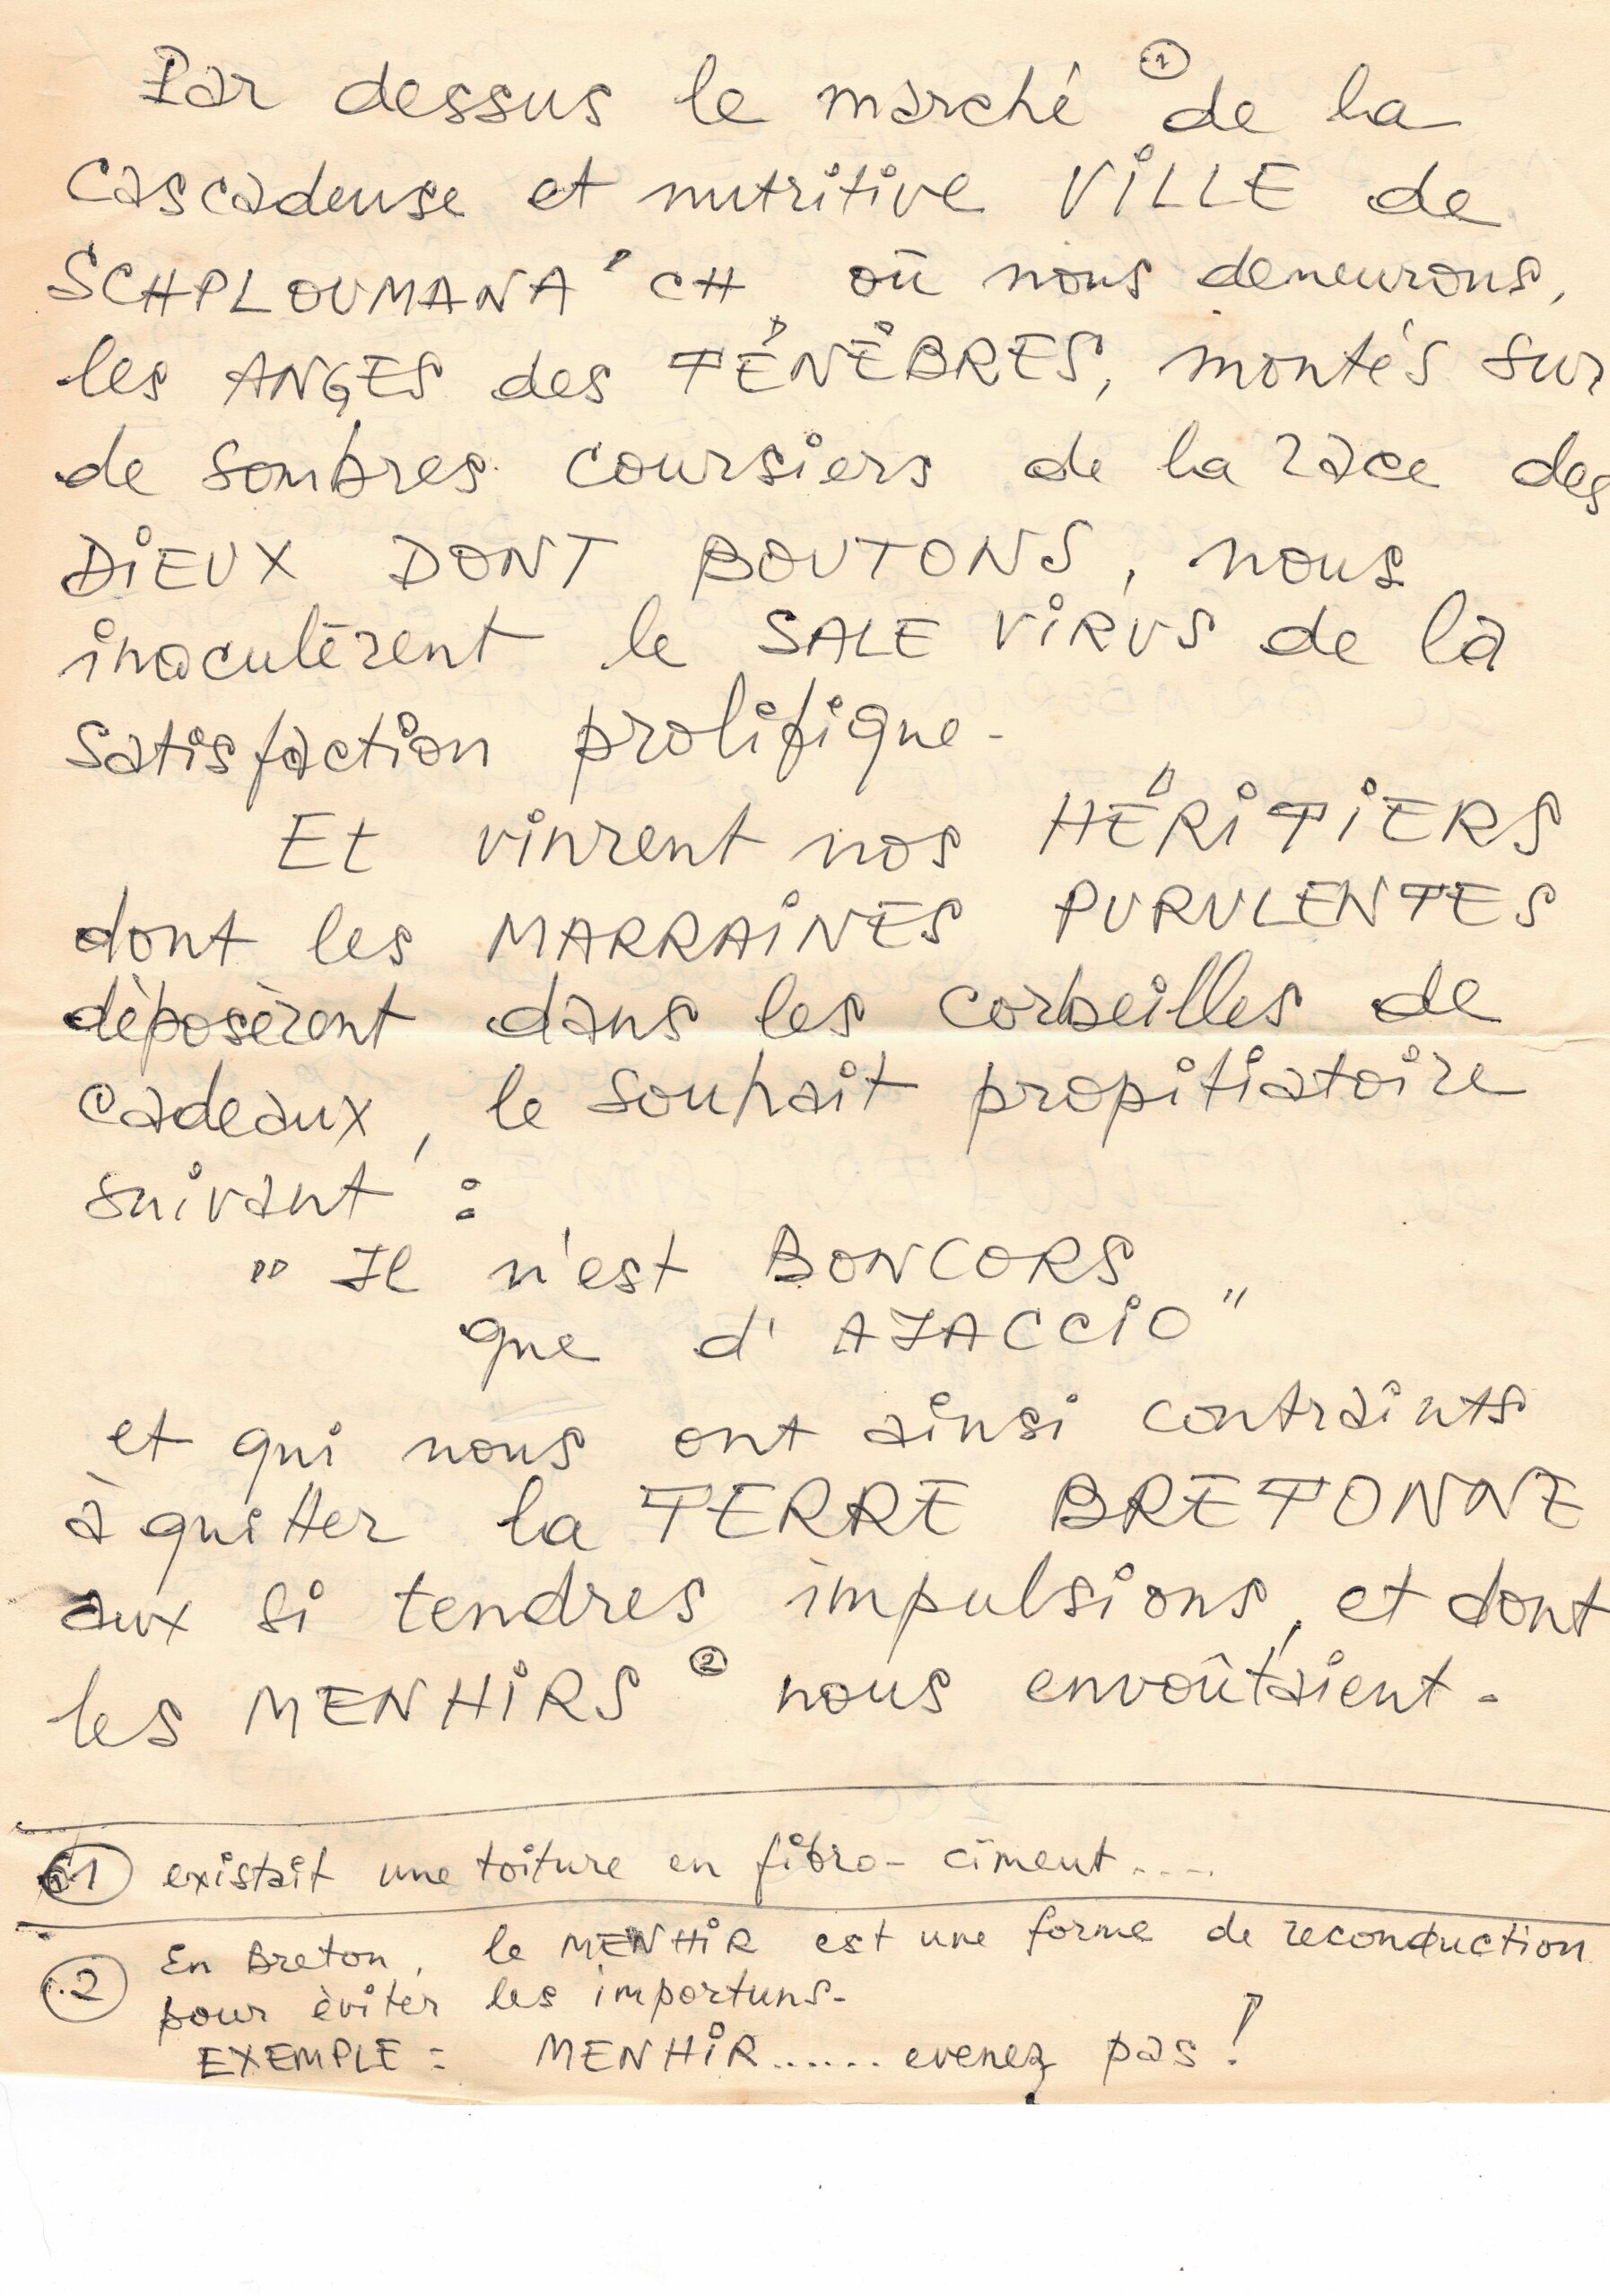 Par dessus le marché ① de la
cascadeuse et nutritive ViLLE de
SCHPLOUMANA'CH où nous demeurons,
les ANGES des TÉNÈBRES, montés sur
de sombres coursiers de la race des
DiEUX DONT BOUTONS, nous
inoculèrent le SALE ViRUS de la
satisfaction prolifique -
Et vinrent nos HÉRiTiERS
dont les MARRAiNES PURULENTES
déposèrent dans les corbeilles de
cadeaux, le souhait propitiatoire
suivant :
" Il n'est BONCORS
que d'AJACCiO "
et qui nous ont ainsi contraints
à quitter la TERRE BRETONNE
aux si tendres impulsions, et dont
les MENHiRS ② nous envoûtaient.
① existait une toiture en fibro-ciment....
② En Breton, le MENHiR est une forme de reconduction
pour éviter les importuns-
EXEMPLE : MENHiR...... evenez pas !